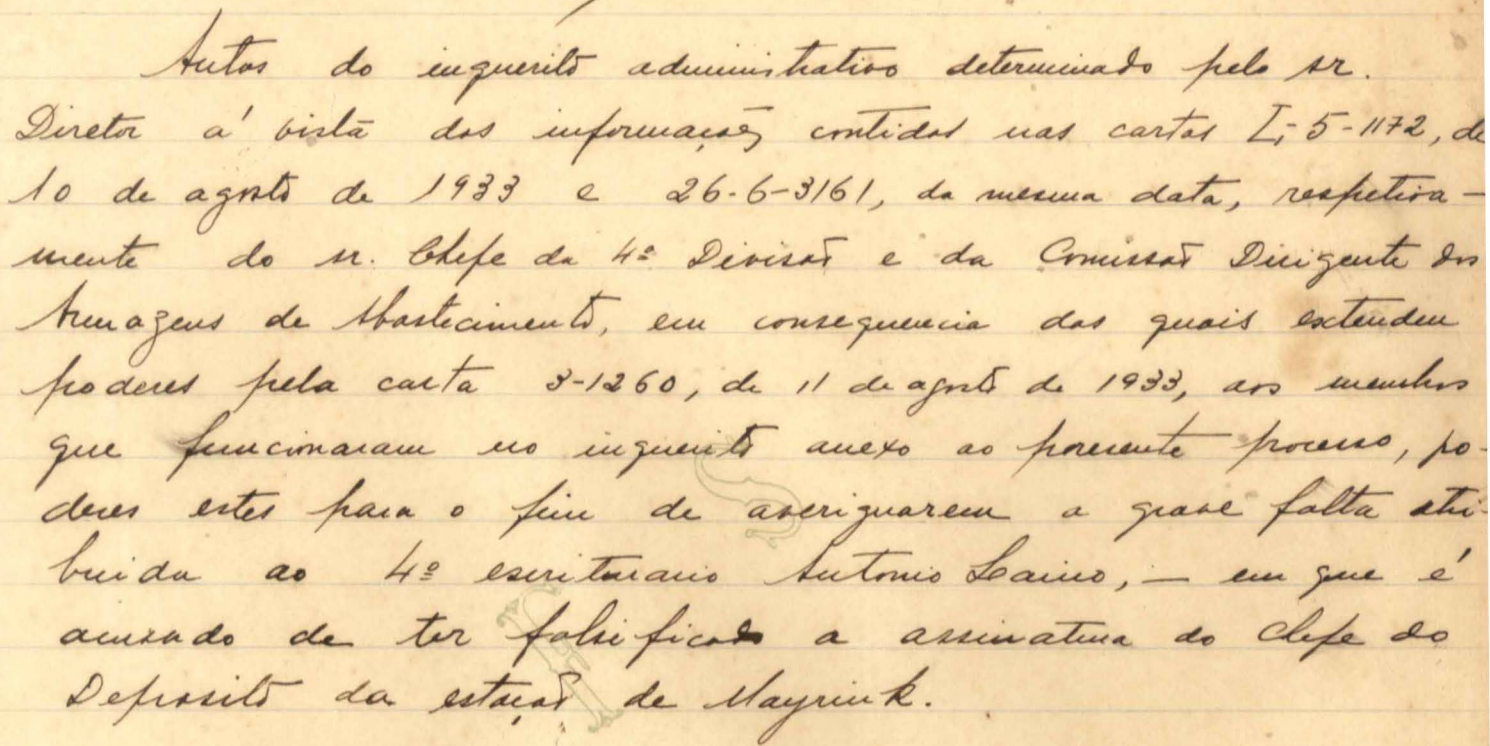 Autos do inquerito administrativo determinado pelo sr.
Diretor a' vista das informações contidas nas cartas I-5-1172, de
10 de agosto de 1933 e 26-6-3161, da mesma data, respetiva-
mente do sr. Chefe da 4ª Divisão e da Comissão Dirigente dos
Armazens de Abastecimento, em consequencia das quais extendeu
poderes pela carta 3-1260, de 11 de agosto de 1933, aos membros
que funcionaram no inquerito anexo ao presente processo, po-
deres estes para o fim de averiguarem a grave falta atri-
buida ao 4º escriturario Antonio Laino, — em que é
acusado de ter falsificado a assinatura do chefe do
Deposito da estação de Mayrink.